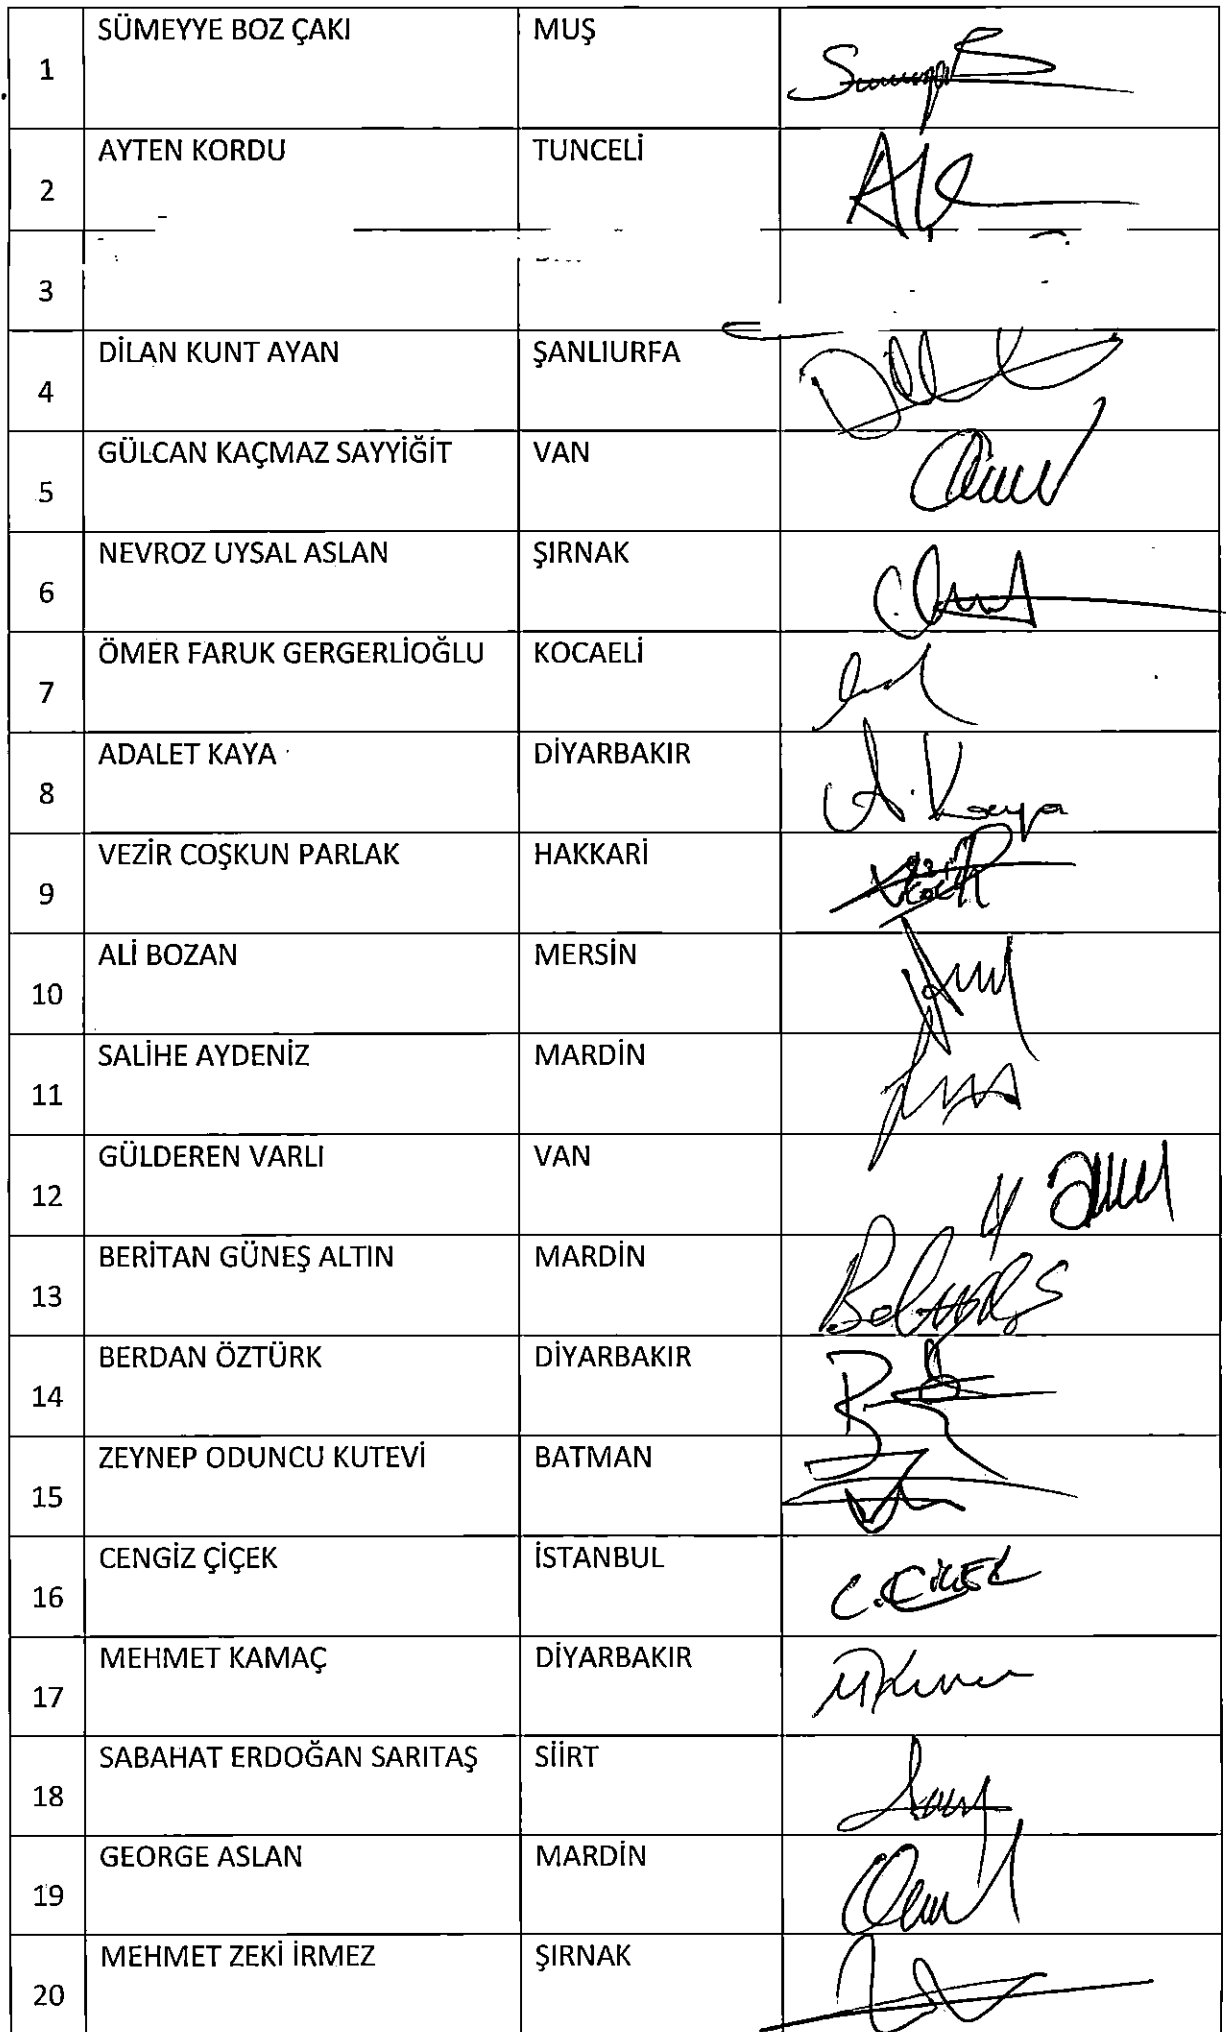 1 SÜMEYYE BOZ ÇAKI MUŞ
2 AYTEN KORDU TUNCELİ
3
4 DİLAN KUNT AYAN ŞANLIURFA
5 GÜLCAN KAÇMAZ SAYYİĞİT VAN
6 NEVROZ UYSAL ASLAN ŞIRNAK
7 ÖMER FARUK GERGERLİOĞLU KOCAELİ
8 ADALET KAYA DİYARBAKIR A. Kaya
9 VEZİR COŞKUN PARLAK HAKKARİ
10 ALİ BOZAN MERSİN
11 SALİHE AYDENİZ MARDİN
12 GÜLDEREN VARLI VAN
13 BERİTAN GÜNEŞ ALTIN MARDİN
14 BERDAN ÖZTÜRK DİYARBAKIR
15 ZEYNEP ODUNCU KUTEVİ BATMAN
16 CENGİZ ÇİÇEK İSTANBUL C. ÇİÇEK
17 MEHMET KAMAÇ DİYARBAKIR
18 SABAHAT ERDOĞAN SARITAŞ SİİRT
19 GEORGE ASLAN MARDİN
20 MEHMET ZEKİ İRMEZ ŞIRNAK